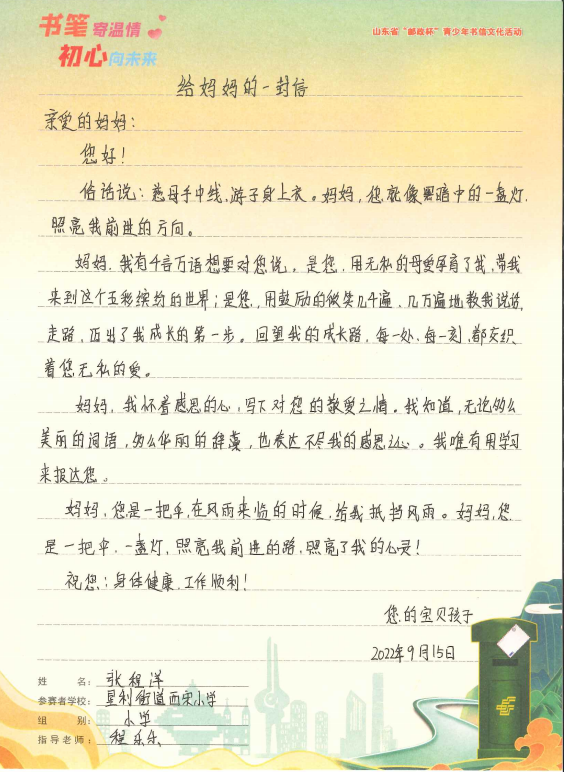 书笔寄温情
初心向未来
山东省“邮政杯”青少年书信文化活动
给妈妈的一封信
亲爱的妈妈：
您好！
俗话说：慈母手中线，游子身上衣。妈妈，您就像黑暗中的一盏灯，
照亮我前进的方向。
妈妈，我有千言万语想要对您说，是您，用无私的母爱孕育了我，带我
来到这个五彩缤纷的世界；是您，用鼓励的微笑几千遍、几万遍地教我说话，
走路，迈出了我成长的第一步。回望我的成长路，每一处、每一刻，都交织
着您无私的爱。
妈妈，我怀着感恩的心，写下对您的敬爱之情。我知道，无论多么
美丽的词语，多么华丽的辞藻，也表达不尽我的感恩之心。我唯有用学习
来报达您。
妈妈，您是一把伞，在风雨来临的时候，给我抵挡风雨。妈妈，您
是一把伞，一盏灯，照亮我前进的路，照亮了我的心灵！
祝您：身体健康，工作顺利！
您的宝贝孩子
2022年9月15日
姓 名： 张程洋
参赛者学校： 里利街道西宋小学
组 别： 小学
指导老师： 程乐乐